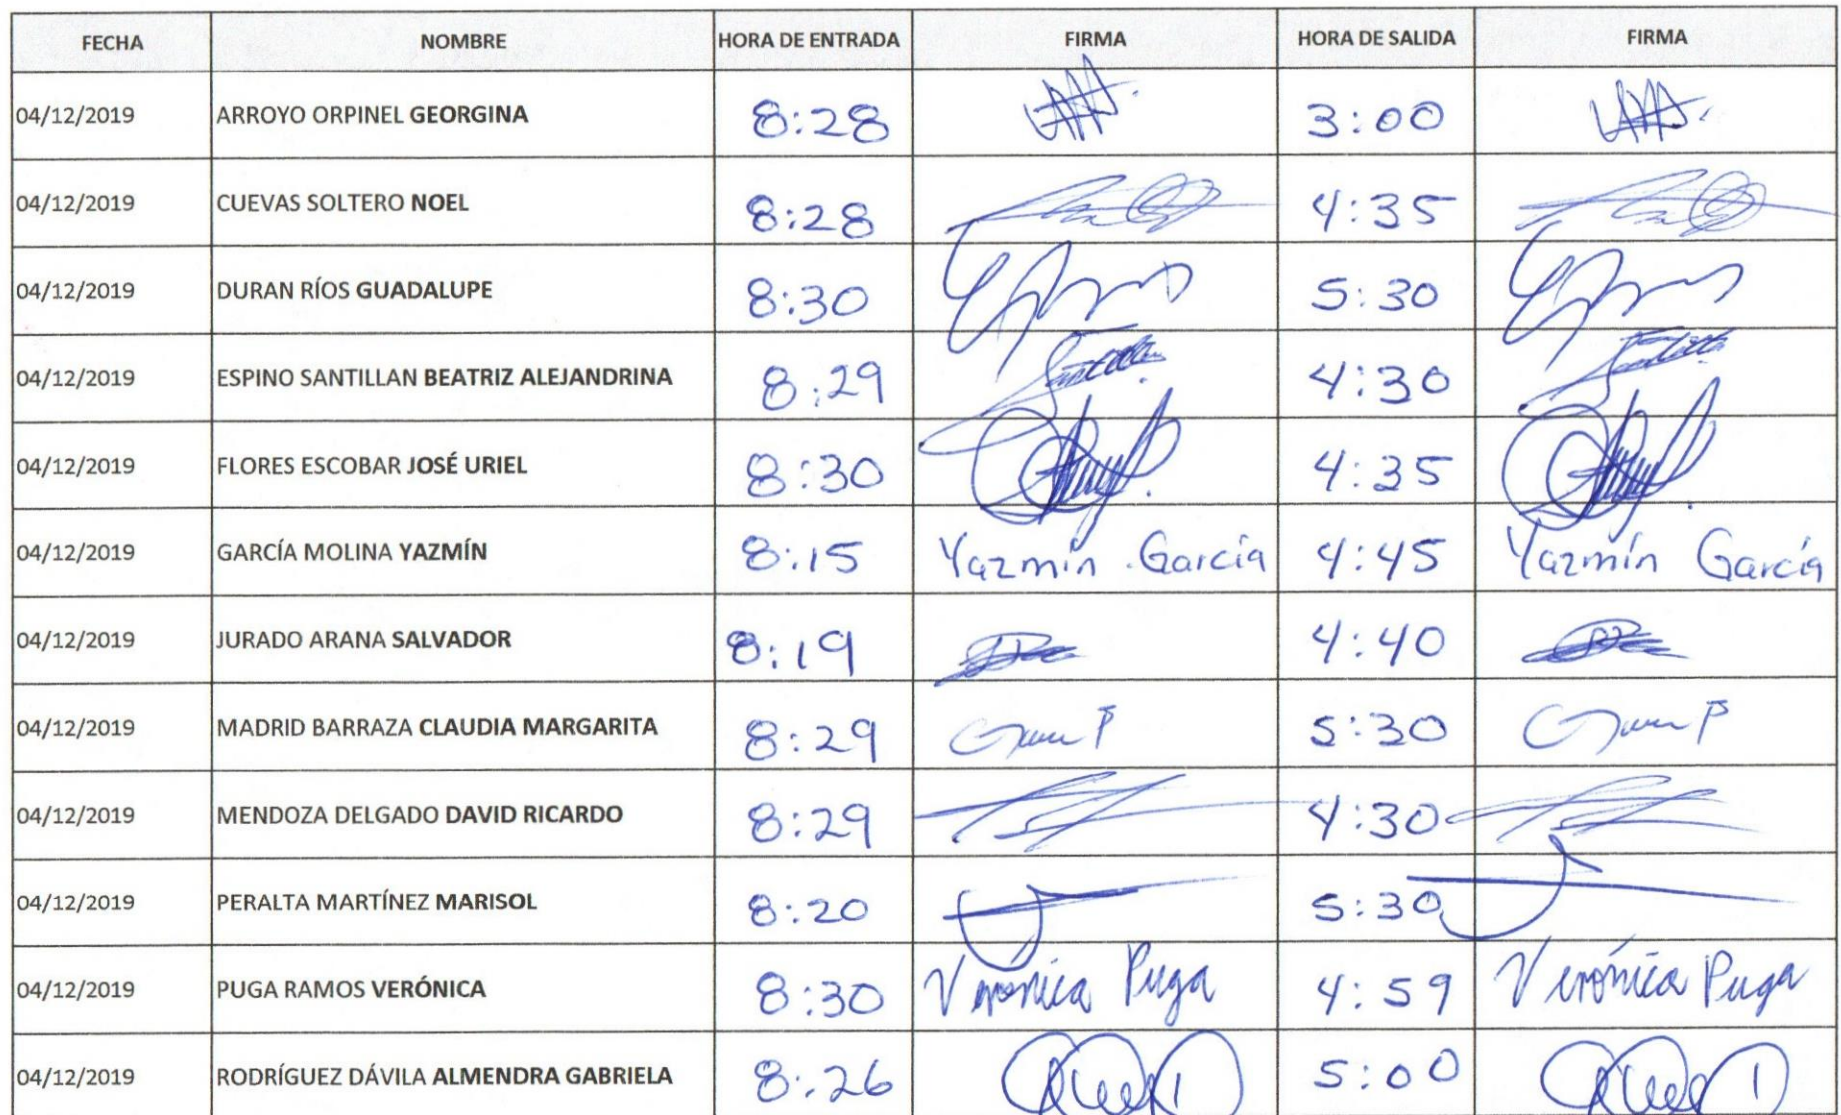 FECHA NOMBRE HORA DE ENTRADA FIRMA HORA DE SALIDA FIRMA
04/12/2019 ARROYO ORPINEL GEORGINA 8:28 3:00
04/12/2019 CUEVAS SOLTERO NOEL 8:28 4:35
04/12/2019 DURAN RÍOS GUADALUPE 8:30 5:30
04/12/2019 ESPINO SANTILLAN BEATRIZ ALEJANDRINA 8:29 4:30
04/12/2019 FLORES ESCOBAR JOSÉ URIEL 8:30 4:35
04/12/2019 GARCÍA MOLINA YAZMÍN 8:15 Yazmín García 4:45 Yazmín García
04/12/2019 JURADO ARANA SALVADOR 8:19 4:40
04/12/2019 MADRID BARRAZA CLAUDIA MARGARITA 8:29 5:30
04/12/2019 MENDOZA DELGADO DAVID RICARDO 8:29 4:30
04/12/2019 PERALTA MARTÍNEZ MARISOL 8:20 5:30
04/12/2019 PUGA RAMOS VERÓNICA 8:30 Verónica Puga 4:59 Verónica Puga
04/12/2019 RODRÍGUEZ DÁVILA ALMENDRA GABRIELA 8:26 5:00